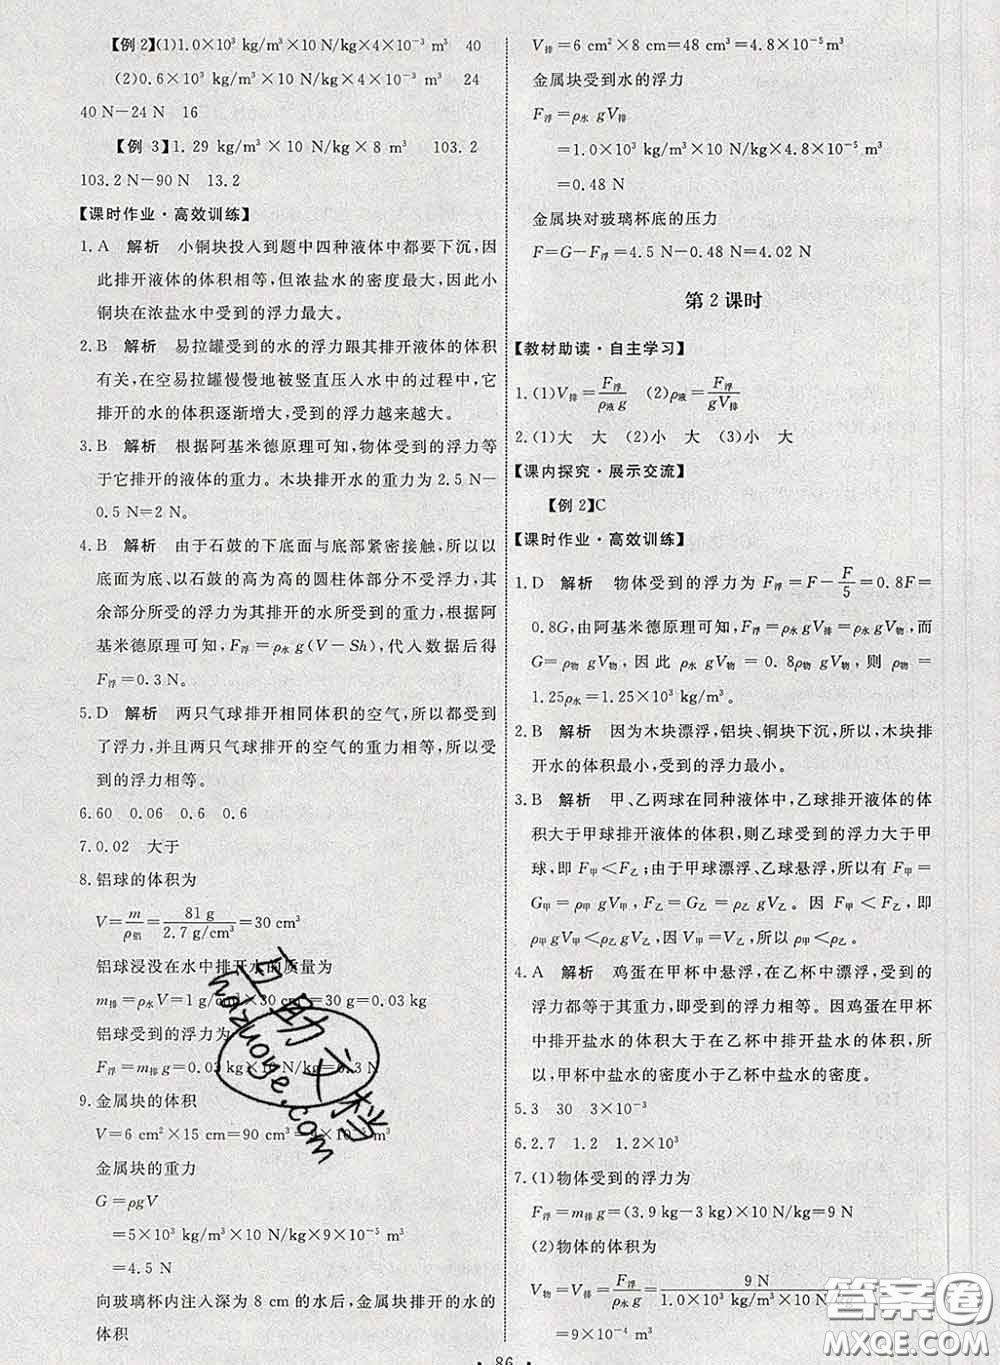 【例2】(1)1.0×10³ kg/m³×10 N/kg×4×10⁻³ m³　40
(2)0.6×10³ kg/m³×10 N/kg×4×10⁻³ m³　24
40 N－24 N　16
【例 3】1.29 kg/m³×10 N/kg×8 m³　103.2
103.2 N－90 N　13.2
【课时作业·高效训练】
1.A　解析　小铜块投入到题中四种液体中都要下沉,因
此排开液体的体积相等,但浓盐水的密度最大,因此小
铜块在浓盐水中受到的浮力最大。
2.B　解析　易拉罐受到的水的浮力跟其排开液体的体积
有关,在空易拉罐慢慢地被竖直压入水中的过程中,它
排开的水的体积逐渐增大,受到的浮力越来越大。
3.B　解析　根据阿基米德原理可知,物体受到的浮力等
于它排开的液体的重力。木块排开水的重力为 2.5 N
－0.5 N＝2 N。
4.B　解析　由于石鼓的下底面与底部紧密接触,所以以
底面为底、以石鼓的高为高的圆柱体部分不受浮力,其
余部分所受的浮力为其排开的水所受到的重力,根据阿
基米德原理可知,F浮＝ρ水 g(V－Sh),代入数据后得
F浮＝0.3 N。
5.D　解析　两只气球排开相同体积的空气,所以都受到
了浮力,并且两只气球排开的空气的重力相等,所以受
到的浮力相等。
6.60　0.06　0.6　0.6
7.0.02　大于
8.铝球的体积为
V＝m/ρ铝＝81 g/2.7 g/cm³＝30 cm³
铝球浸没在水中排开水的质量为
m排＝ρ水V＝1 g/cm³×30 cm³＝30 g＝0.03 kg
铝球受到的浮力为
F浮＝m排g＝0.03 kg×10 N/kg＝0.3 N
9.金属块的体积
V＝6 cm²×15 cm＝90 cm³＝9×10⁻⁵ m³
金属块的重力
G＝ρgV
＝5×10³ kg/m³×10 N/kg×9×10⁻⁵ m³
＝4.5 N
向玻璃杯内注入深为 8 cm 的水后,金属块排开的水的
体积
V排＝6 cm²×8 cm＝48 cm³＝4.8×10⁻⁵m³
金属块受到水的浮力
F浮＝ρ水 gV排
＝1.0×10³ kg/m³×10 N/kg×4.8×10⁻⁵ m³
＝0.48 N
金属块对玻璃杯底的压力
F＝G－F浮＝4.5 N－0.48 N＝4.02 N
第 2 课时
【教材助读·自主学习】
1.(1)V排＝F浮/ρ液 g　(2)ρ液＝F浮/gV排
2.(1)大　大　(2)小　大　(3)小　大
【课内探究·展示交流】
【例 2】C
【课时作业·高效训练】
1.D　解析　物体受到的浮力为 F浮＝F－F/5＝0.8F＝
0.8G,由阿基米德原理可知,F浮＝ρ水 gV排＝ρ水 gV物,而
G＝ρ物 gV物,因此 ρ水 gV物＝0.8ρ物 gV物,则 ρ物＝
1.25ρ水＝1.25×10³ kg/m³。
2.B　解析　因为木块漂浮,铝块、铜块下沉,所以,木块排
开水的体积最小,受到的浮力最小。
3.B　解析　甲、乙两球在同种液体中,乙球排开液体的体
积大于甲球排开液体的体积,则乙球受到的浮力大于甲
球,即 F甲＜F乙;由于甲球漂浮、乙球悬浮,所以 F甲＝
G甲＝ρ甲 gV甲,F乙＝G乙＝ρ乙 gV乙。因 F甲＜F乙,即
ρ甲 gV甲＜ρ乙 gV乙,因 V甲＝V乙,所以 ρ甲＜ρ乙。
4.A　解析　鸡蛋在甲杯中悬浮,在乙杯中漂浮,受到的
浮力都等于其重力,即受到的浮力相等。因鸡蛋在甲杯
中排开盐水的体积大于在乙杯中排开盐水的体积,所
以,甲杯中盐水的密度小于乙杯中盐水的密度。
5.3　30　3×10⁻³
6.2.7　1.2　1.2×10³
7.(1)物体受到的浮力为
F浮＝m排g＝(3.9 kg－3 kg)×10 N/kg＝9 N
(2)物体的体积为
V物＝V排＝F浮/ρ水 g＝9 N/1.0×10³ kg/m³×10 N/kg
＝9×10⁻⁴ m³
· 86 ·
互助文档
huzuoye.com
答案圈
MXQE.COM